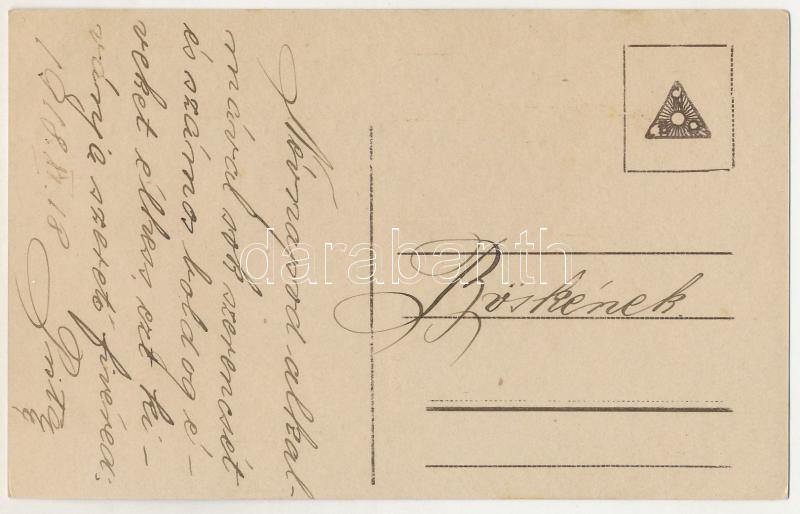 Névnapod alkal-
mával sok szerencsét
és számos boldog é-
veket élhess, ezt ki-
vánja szerető fivéred.
1918. XI. 18
Böskének.
darabanth